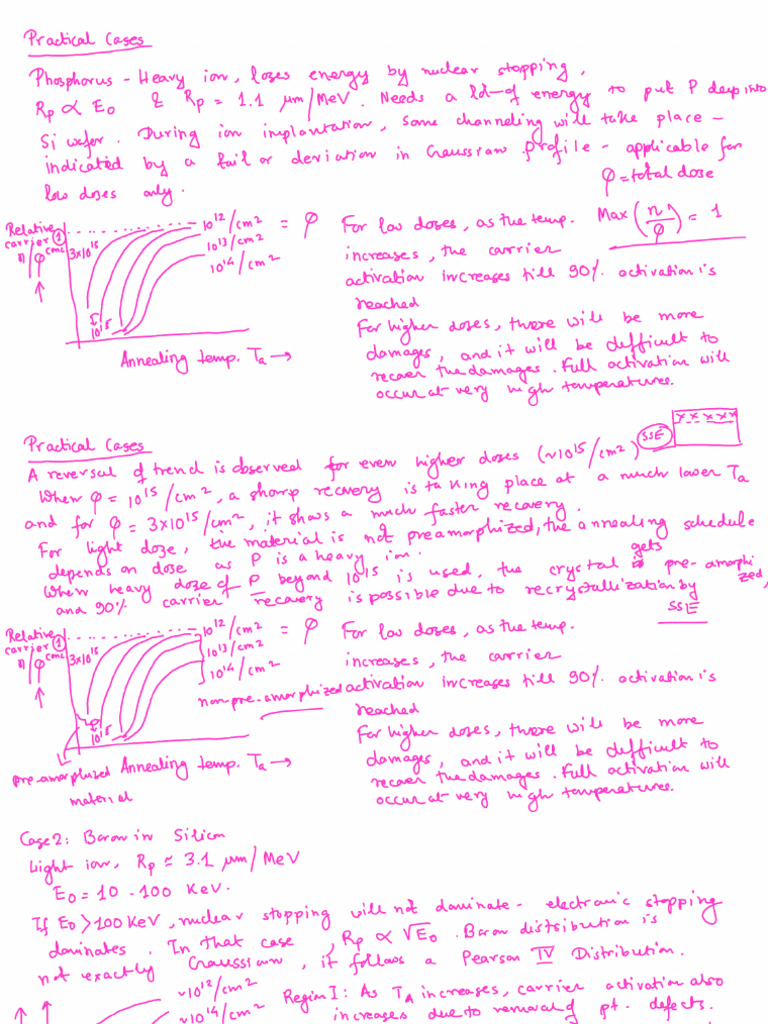 Practical Cases
Phosphorus - Heavy ion, loses energy by nuclear stopping,
Rp ∝ E0 & Rp = 1.1 μm/MeV. Needs a lot of energy to put P deep into
Si wafer. During ion implantation, some channeling will take place -
indicated by a tail or deviation in Gaussian profile - applicable for
low doses only.
φ = total dose
Relative
carrier
conc
n/φ
1
3x10^15
10^12/cm2 = φ
10^13/cm2
10^14/cm2
10^15
Annealing temp. Ta →
For low doses, as the temp.
increases, the carrier
activation increases till 90% activation is
reached
Max (n/φ) = 1
For higher doses, there will be more
damages, and it will be difficult to
recover the damages. Full activation will
occur at very high temperatures.
Practical Cases
SSE
x x x x x
A reversal of trend is observed for even higher doses (~10^15/cm2)
When φ = 10^15/cm2, a sharp recovery is taking place at a much lower Ta
and for φ = 3x10^15/cm2, it shows a much faster recovery.
For light doze, the material is not preamorphized, the annealing schedule
depends on dose as P is a heavy ion.
When heavy doze of P beyond 10^15 is used, the crystal gets pre-amorphized,
and 90% carrier recovery is possible due to recrystallization by
SSE
Relative
carrier
conc
n/φ
1
3x10^15
10^12/cm2 = φ
10^13/cm2
10^14/cm2
non pre-amorphized
10^15
pre-amorphized
material
Annealing temp. Ta →
For low doses, as the temp.
increases, the carrier
activation increases till 90% activation is
reached
For higher doses, there will be more
damages, and it will be difficult to
recover the damages. Full activation will
occur at very high temperatures.
Case 2: Boron in Silicon
Light ion, Rp ≈ 3.1 μm/MeV
E0 = 10 - 100 KeV.
If E0 > 100 KeV, nuclear stopping will not dominate - electronic stopping
dominates. In that case, Rp ∝ √E0. Boron distribution is
not exactly Gaussian, it follows a Pearson IV Distribution.
~10^12/cm2
~10^14/cm2
Region I: As TA increases, carrier activation also
increases due to removal of pt. defects.